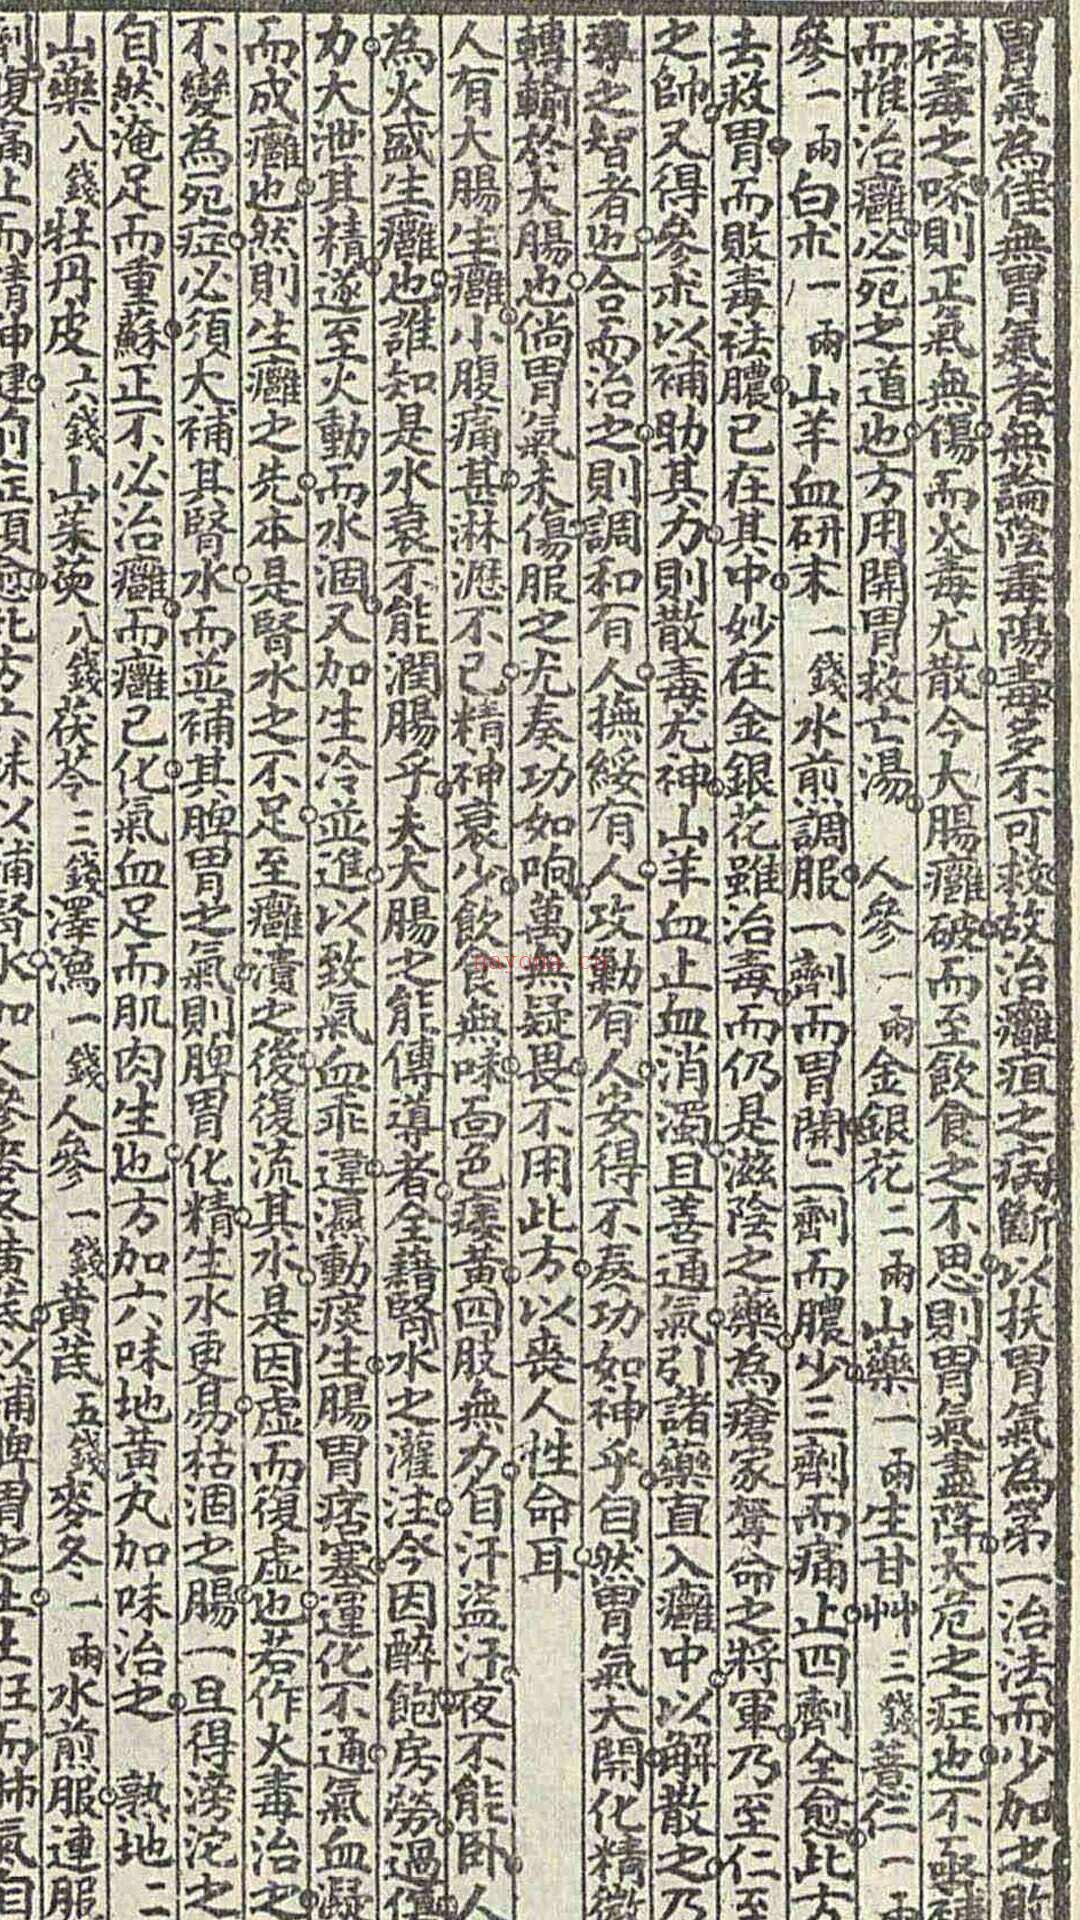 胃氣為佳無胃氣者無論陰毒陽毒多不可救故治癰疽之病斷以扶胃氣為第一治法而少加之敗
祛毒之味則正氣無傷而火毒尤散今大腸癰破而至飲食之不思則胃氣盡降大危之症也不亟補
而惟治癰必死之道也方用開胃救亡湯 人參一兩金銀花二兩山藥一兩生甘艸三錢薏仁一兩
參一兩白朮一兩山羊血研末一錢水煎調服一劑而胃開二劑而膿少三劑而痛止四劑全愈此方
去救胃而敗毒祛膿已在其中妙在金銀花雖治毒而仍是滋陰之藥為瘡家奪命之將軍乃至仁至
之帥又得參朮以補助其力則散毒尤神山羊血止血消濁且善通氣引諸藥直入癰中以解散之乃
導之智者也合而治之則調和有人撫綏有人攻勦有人安得不奏功如神乎自然胃氣大開化精微
轉輸於大腸也倘胃氣未傷服之尤奏功如响萬無疑畏不用此方以喪人性命耳
人有大腸生癰小腹痛甚淋瀝不已精神衰少飲食無味面色痿黃四肢無力自汗盜汗夜不能卧人
為火盛生癰也誰知是水衰不能潤腸乎夫大腸之能傳導者全藉腎水之灌注今因醉飽房勞過度
力大泄其精遂至火動而水涸又加生冷並進以致氣血乖違濕動痰生腸胃痞塞運化不通氣血凝
而成癰也然則生癰之先本是腎水之不足至癰潰之後復流其水是因虛而復虛也若作火毒治之
不變為死症必須大補其腎水而並補其脾胃之氣則脾胃化精生水更易枯涸之腸一旦得滂沱之
自然淹足而重蘇正不必治癰而癰已化氣血足而肌肉生也方加六味地黃丸加味治之 熟地二
山藥八錢牡丹皮六錢山茱萸八錢茯苓三錢澤瀉一錢人參一錢黃茋五錢麥冬一兩水煎服連服
劑腹痛止而精神健前症頓愈此方六味以補腎水加人參麥冬黃茋以補脾胃之土土旺而肺氣自
nayona.cn